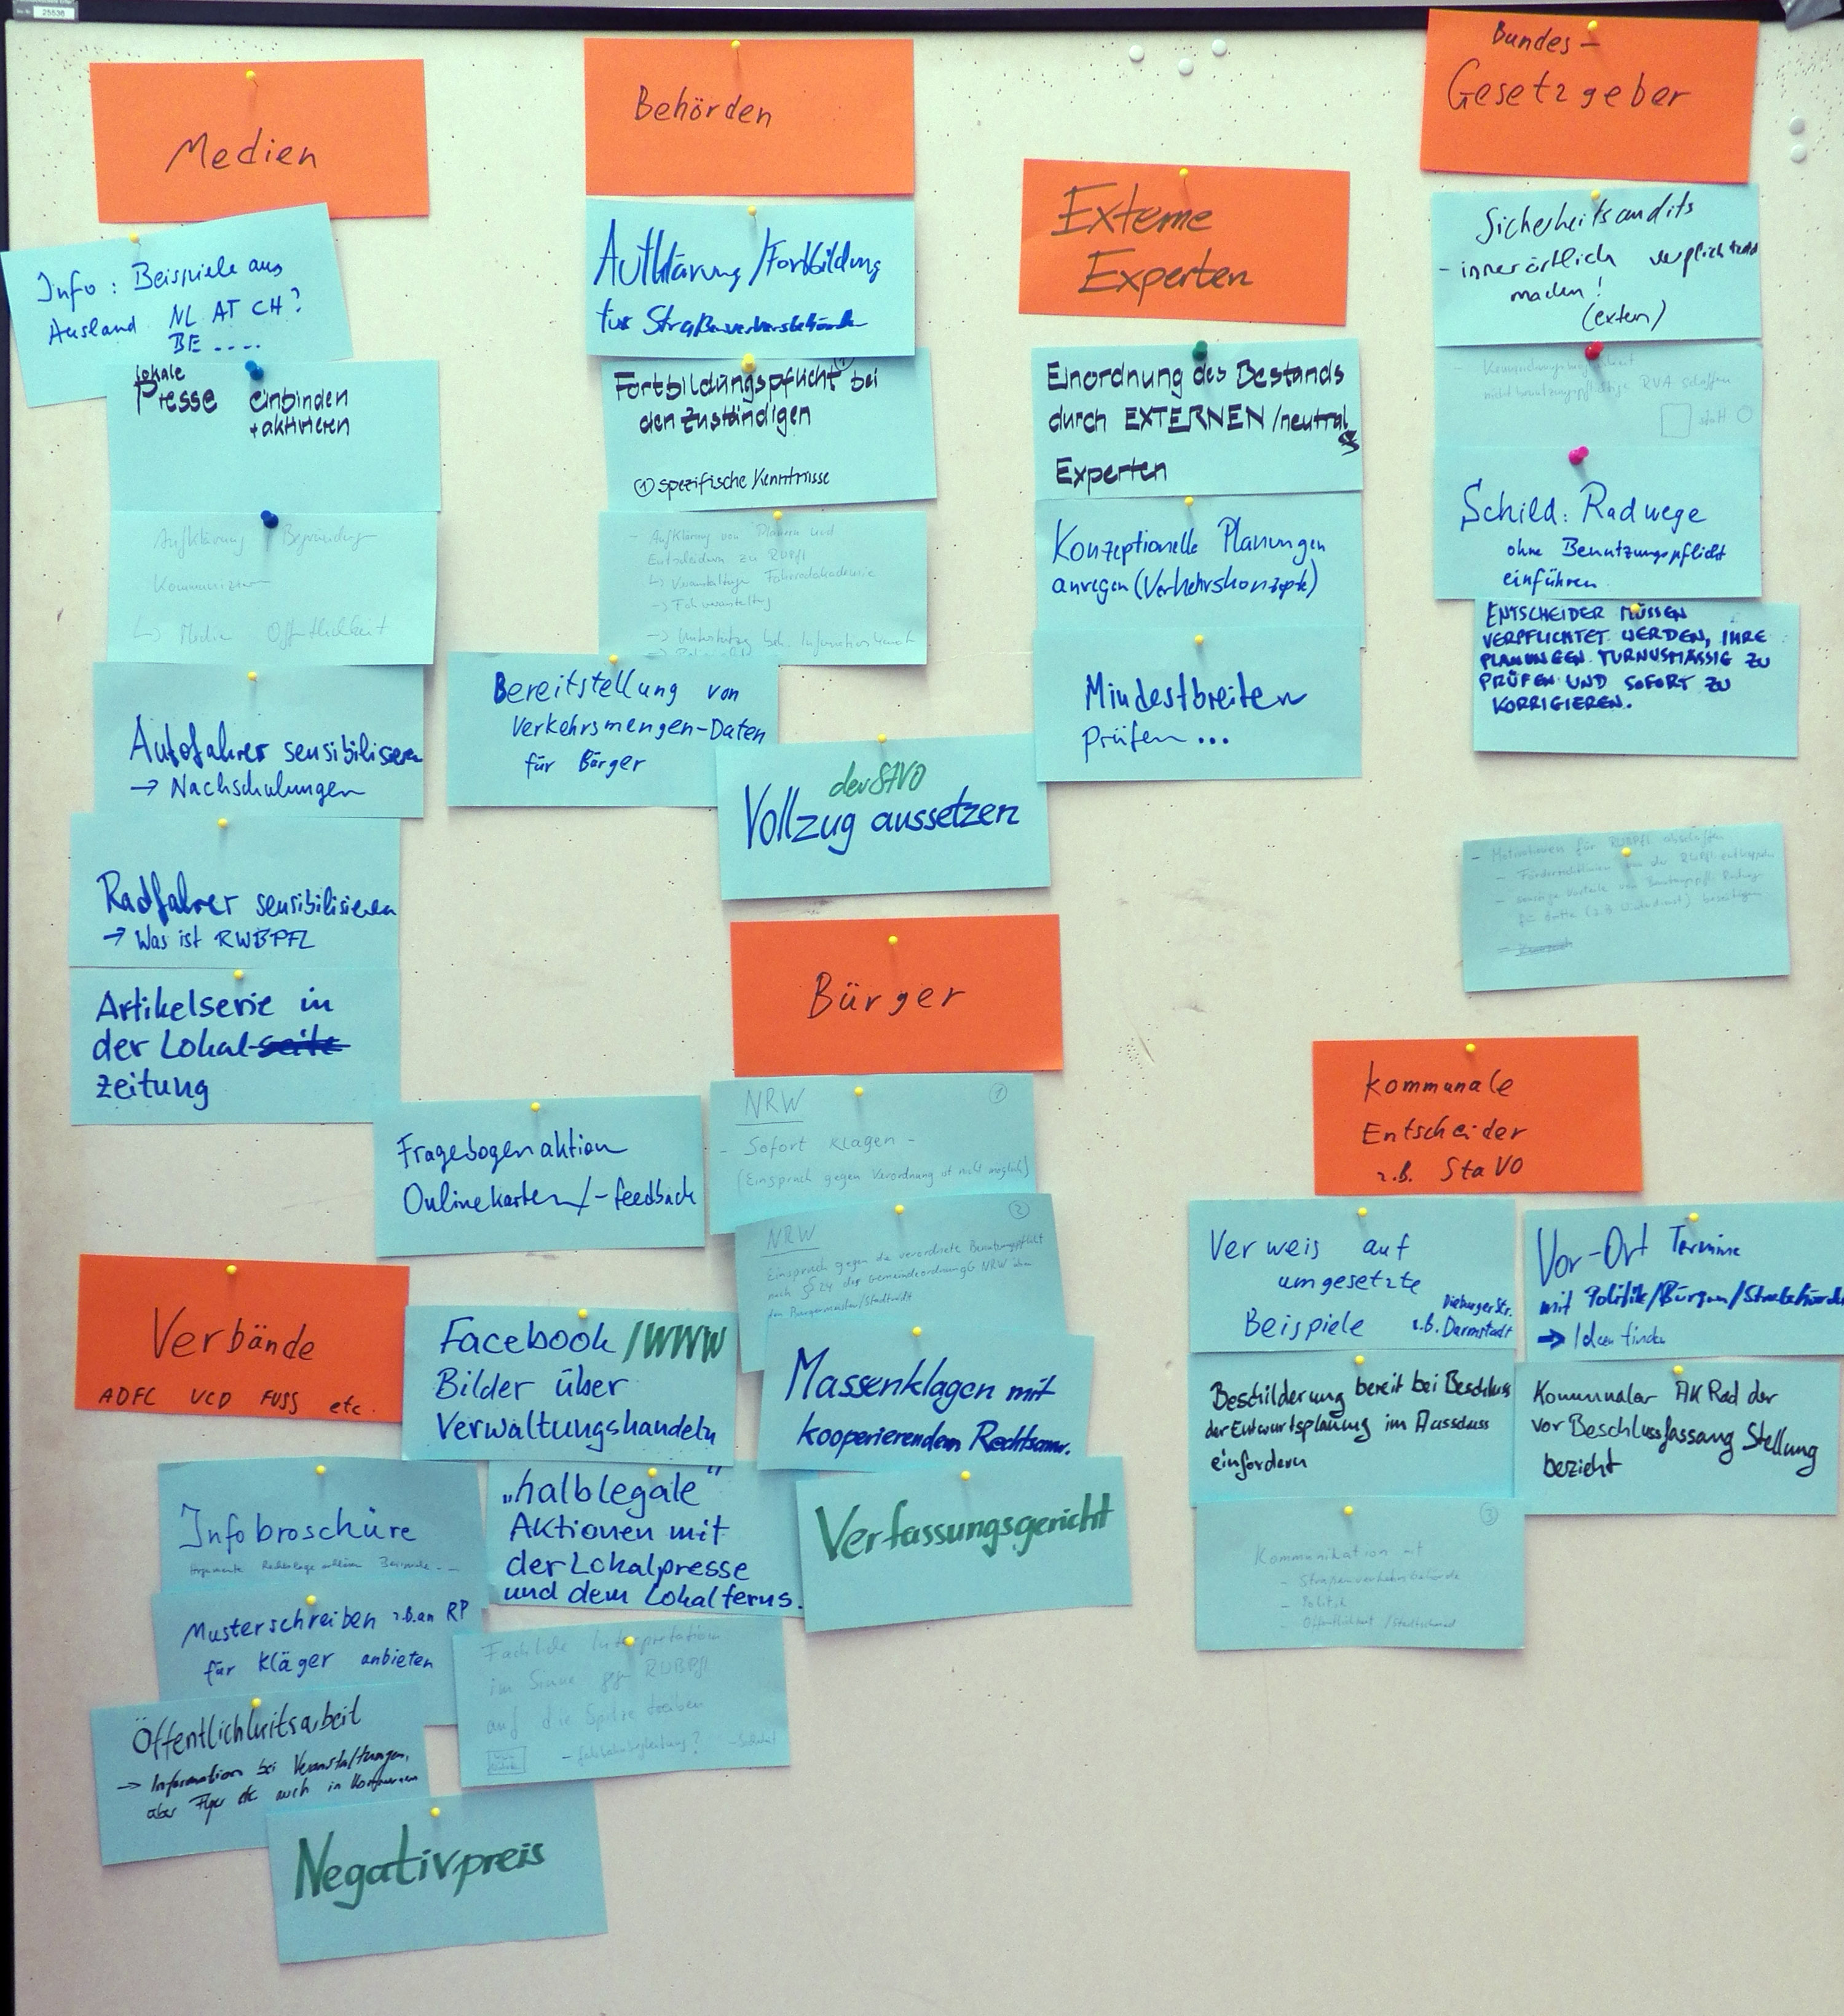 25536
Medien
Info: Beispiele aus
Ausland NL AT CH?
BE ....
lokale
Presse einbinden
+ aktivieren
Aufklärung Begründung
→ Medien Öffentlichkeit
Autofahrer sensibilisieren
→ Nachschulungen
Radfahrer sensibilisieren
→ Was ist RWBPFL
Artikelserie in
der Lokal-seite
zeitung
Behörden
Aufklärung/Fortbildung
für Straßenverkehrsbehörde
Fortbildungspflicht bei ①
den Zuständigen
① spezifische Kenntnisse
- Aufklärung von Planern und
Entscheidern zu RWBPfl
Bereitstellung von
Verkehrsmengen-Daten
für Bürger
der StVO
Vollzug aussetzen
Externe
Experten
Einordnung des Bestands
durch EXTERNEN/neutrale
Experten
Konzeptionelle Planungen
anregen (Verkehrskonzepte)
Mindestbreiten
prüfen ...
Bundes-
Gesetzgeber
Sicherheitsaudits
- innerörtlich verpflichtend
machen!
(extern)
nicht benutzungspflichtige RVA schaffen
statt
Schild: Radwege
ohne Benutzungspflicht
einführen
ENTSCHEIDER MÜSSEN
VERPFLICHTET WERDEN, IHRE
PLANUNGEN TURNUSMÄSSIG ZU
PRÜFEN UND SOFORT ZU
KORRIGIEREN.
- Motivationen für RWBPfl abschaffen
Bürger
NRW ①
- Sofort klagen -
(Einspruch gegen Verordnung ist nicht möglich)
NRW ②
Einspruch gegen die verordnete Benutzungspflicht
nach § 24 der Gemeindeordnung NRW
Massenklagen mit
kooperierendem Rechtsanw.
Verfassungsgericht
Fragebogenaktion
Onlinekarten/-feedback
Facebook /WWW
Bilder über
Verwaltungshandeln
„halblegale“
Aktionen mit
der Lokalpresse
und dem Lokalferns.
Fachliche Interpretation
im Sinne gegen RWBPfl
auf die Spitze treiben
Verbände
ADFC VCD FUSS etc.
Infobroschüre
Musterschreiben z.B. an RP
für Kläger anbieten
Öffentlichkeitsarbeit
→ Information bei Veranstaltungen,
über Flyer etc auch in Kommunen
Negativpreis
kommunale
Entscheider
z.B. StaVO
Verweis auf
umgesetzte
Beispiele z.B. Dieburger Str. Darmstadt
Vor-Ort Termine
mit Politik/Bürgern/
→ Ideen finden
Beschilderung bereit bei Beschluss
der Entwurtsplanung im Ausschuss
einfordern
Kommunaler AK Rad der
vor Beschlussfassung Stellung
bezieht
③
Kommunikation mit
- Straßenverkehrsbehörde
- Politik
- Öffentlichkeit